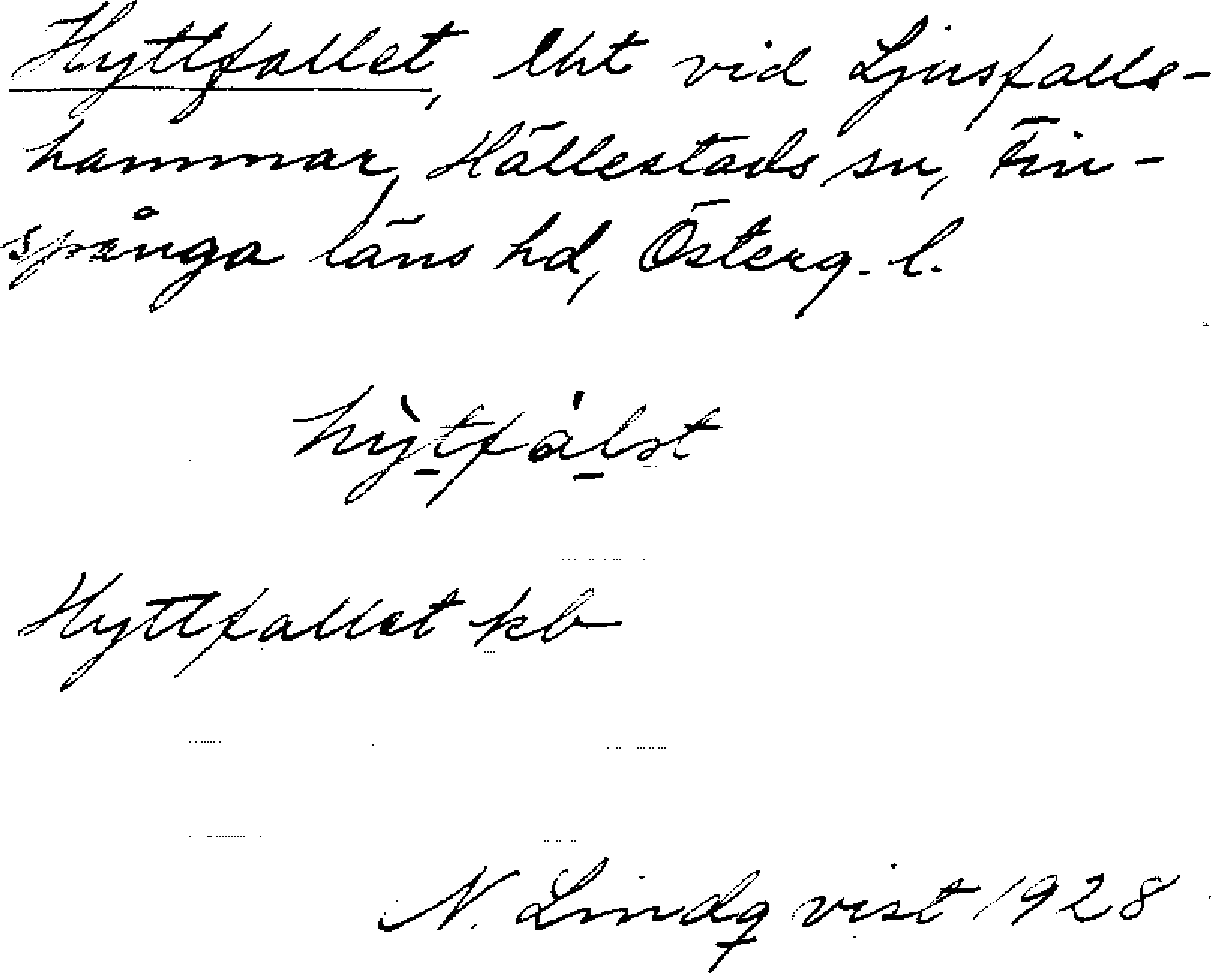 Hyttfallet, lht vid Ljusfalls-
hammar, Hällestads sn, Fin-
spånga läns hd, Österg. l.
hy̍tfa̍lət
Hyttfallet kb
N. Lindqvist 1928